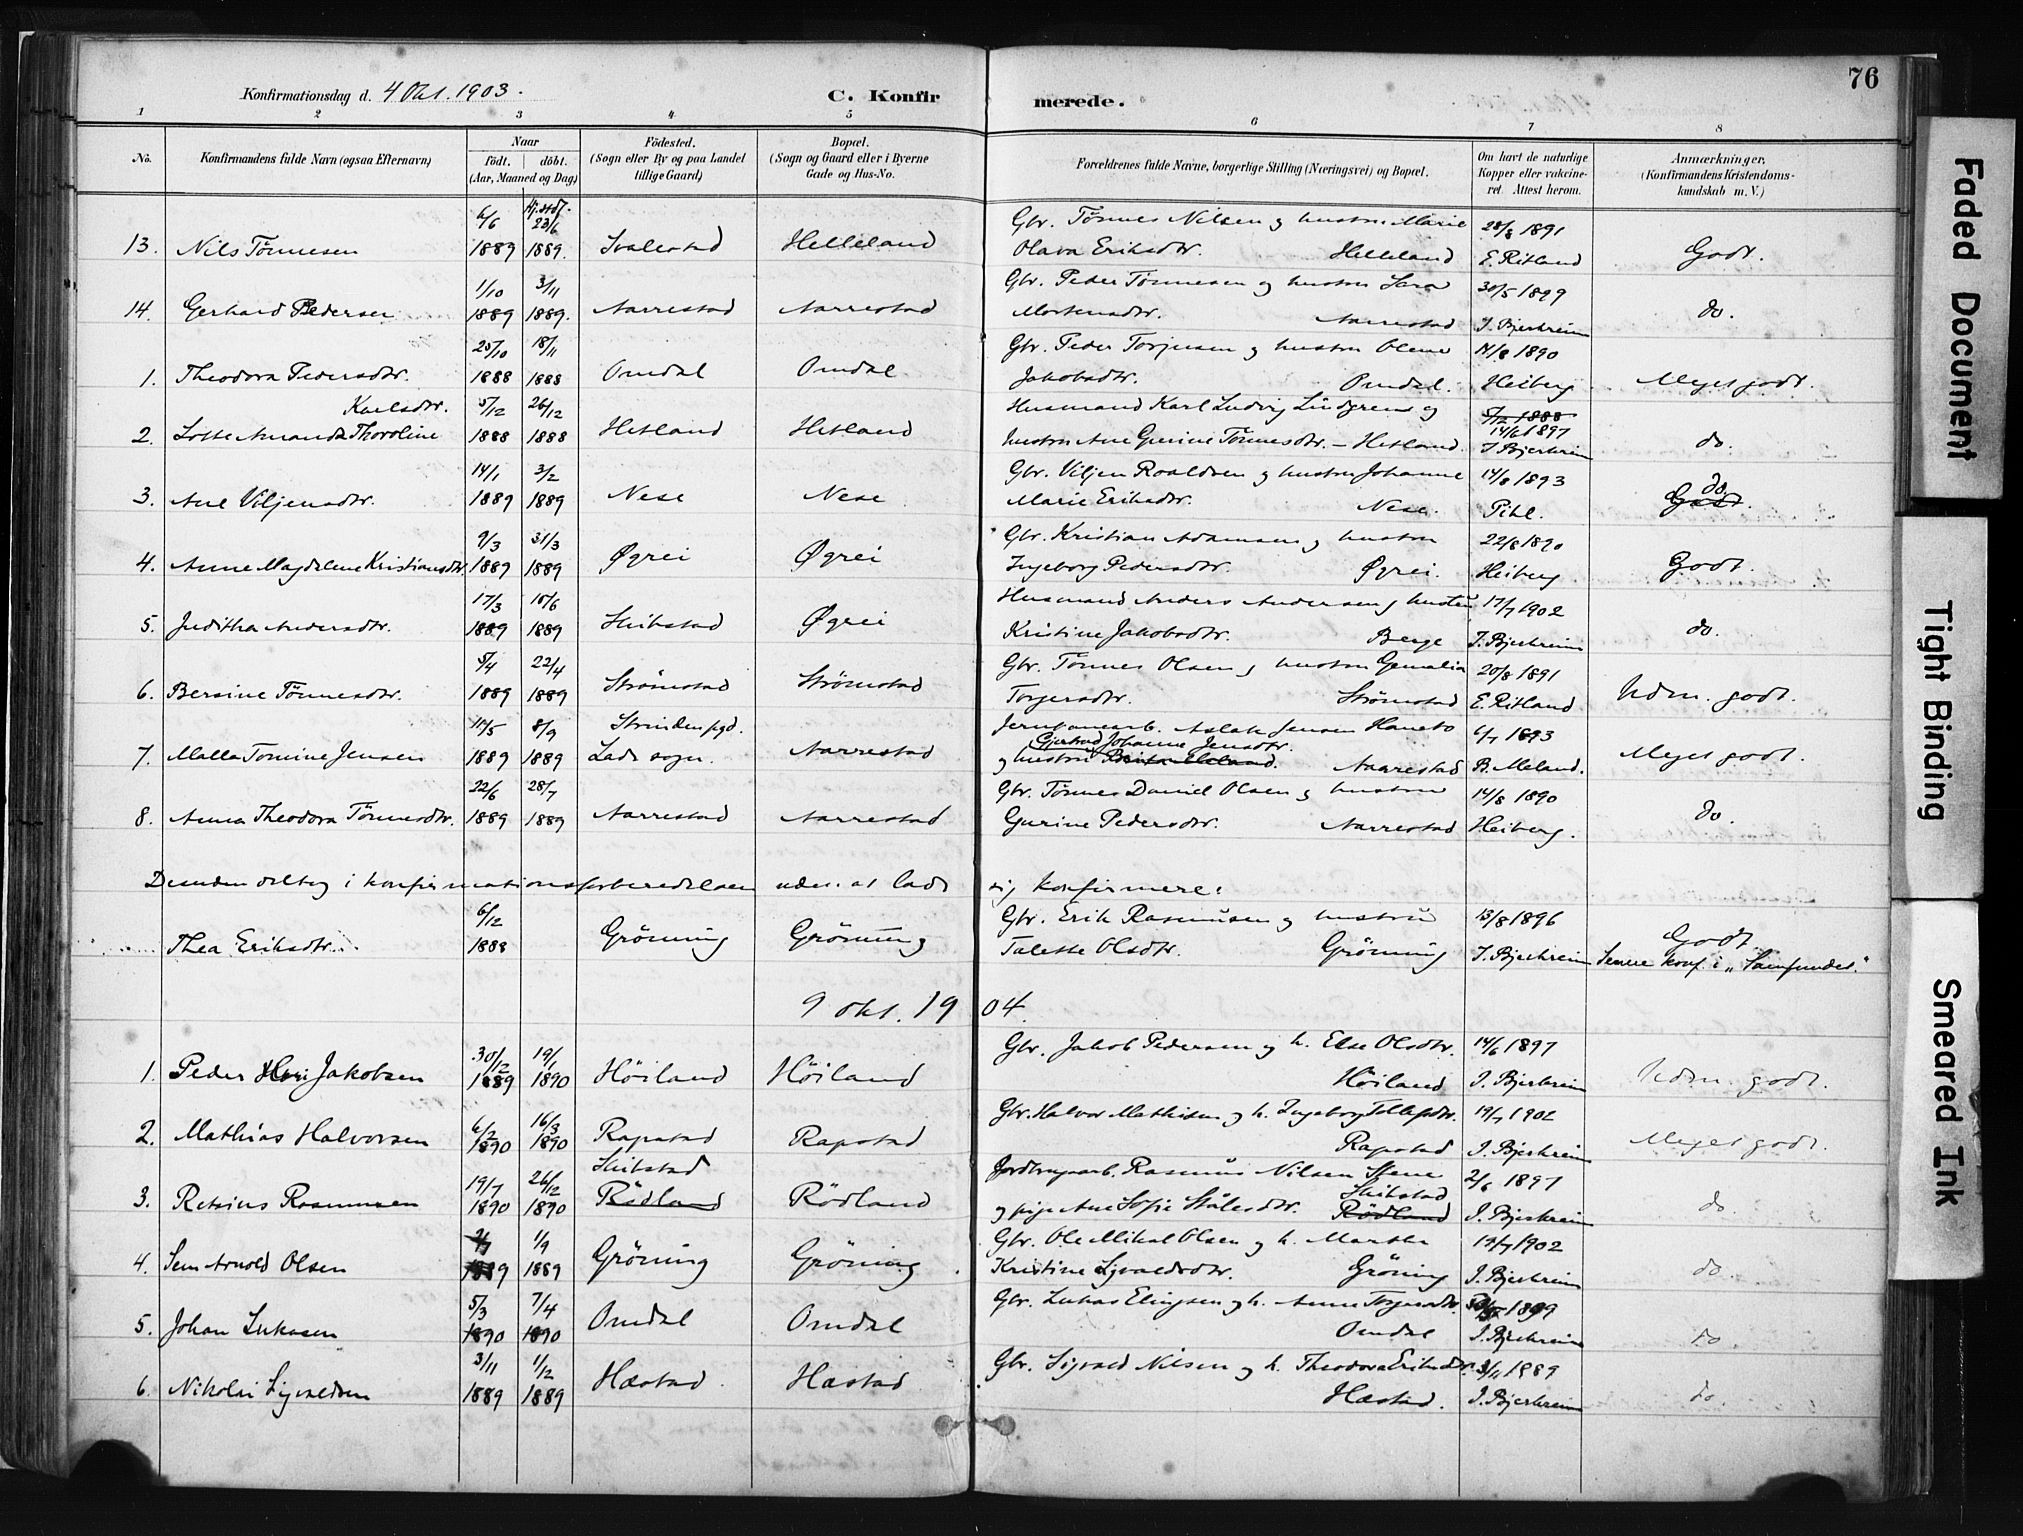 76
Konfirmationsdag d. 4 Okt. 1903.
C. Konfirmerede.
1 2 3 4 5 6 7 8
No.
Konfirmandens fulde Navn (ogsaa Efternavn)
Naar
födt. döbt.
(Aar, Maaned og Dag)
Födested.
(Sogn eller By og paa Landet
tillige Gaard)
Bopæl.
(Sogn og Gaard eller i Byerne
Gade og Hus-No.
Forældrenes fulde Navne, borgerlige Stilling (Næringsvei) og Bopæl.
Om havt de naturlige
Kopper eller vakcine-
ret. Attest herom.
Anmærkninger.
(Konfirmandens Kristendoms-
kundskab m. V.)
6/6 23/6 Gbr. Tønnes Nilsen og hustru Marie 28/8 1891
13. Nils Tønnesen 1889 1889. Svalestad Helleland Olava Eriksdtr. Helleland E. Ritland Godt.
1/10 3/11 Gbr. Peder Tønnesen og hustru Sara 30/5 1899
14. Gerhard Pedersen 1889 1889. Aarrestad Aarrestad Mortensdtr. Aarrestad J. Bjerkreim do.
25/10 18/11 Gbr. Peder Torjusen og hustru Olene 14/8 1890
1. Theodora Pedersdtr. 1888 1888 Omdal Omdal Jakobsdtr. Omdal. Heiberg Meget godt.
Karlsdtr. 5/12 26/12 Husmand Karl Ludvig Lindgren og 5/12 1888
14/6 1897
2. Lotte Amanda Thoroline 1888 1888 Hetland Hetland hustru Ane Gurine Tønnesdtr. – Hetland. J. Bjerkreim do.
14/1 3/2 Gbr. Viljen Roaldsen og hustru Johanne 14/8 1893
3. Ane Viljensdtr. 1889 1889 Nese Nese Marie Eriksdtr. Nese. Pihl. Godt. do
9/3 31/3 Gbr. Kristian Adamsen og hustru 22/8 1890
4. Anne Magdalene Kristiansdtr. 1889 1889 Øgrei Øgrei Ingeborg Pedersdtr. Øgrei. Heiberg Godt.
17/3 10/6 Husmand Anders Andersen og hustru 17/7 1902
5. Juditha Andersdtr. 1889 1889 Skibstad Øgrei Kristine Jakobsdtr. Berge J. Bjerkreim do.
5/4 22/4 Gbr. Tønnes Olsen og hustru 20/8 1891
6. Bersine Tønnesdtr. 1889 1889 Strömstad Strömstad Torgersdtr. Strömstad E. Ritland Udm. godt.
11/5 8/9 Strinden pgd. Jernbanearb. Aslak Jensen 6/7 1893
Gjertrud Johanne Jensdtr.
7. Malla Tomine Jensen 1889 1889 Lade sogn. Aarrestad og hustru Aarrestad B. Meland. Meget godt.
22/6 28/7 Gbr. Tønnes Daniel Olsen og hustru 14/8 1890
8. Anna Theodora Tönnesdtr. 1889 1889 Aarrestad Aarrestad Gurine Pedersdtr. Aarrestad Heiberg. do.
Desuden deltog i konfirmationsforberedelsen uden at lade sig konfirmere:
6/12 Gbr. Erik Rasmussen og hustru 13/8 1896 Godt
Thea Eriksdtr. 1888 Gröning Gröning Talette Olsdtr. Gröning J. Bjerkreim Senere konf. i „Samfundet."
9 okt. 1904
30/12 19/1 Gbr. Jakob Pedersen og h. Else Olsdtr. 14/6 1897
1. Peder Jakobsen 1889 1890 Höiland Höiland Höiland J. Bjerkreim Udm. godt.
6/2 16/3 Gbr. Halvor Mathisen og h. Ingeborg Tollefsdtr. 19/7 1902
2. Mathias Halvorsen 1890 1890 Rapstad Rapstad Rapstad J. Bjerkreim Meget godt.
19/7 26/12 Skibstad Jordbrugsarb. Rasmus Nilsen Stene 2/6 1897
Skibstad
3. Retsius Rasmussen 1890 1890 Rödland Rödland og pige Ane Sofie Ståles dtr. Rödland J. Bjerkreim do.
1/9 Gbr. Ole Mikal Olsen og h. Martha 19/7 1902
4. Sem Arnold Olsen 1889 1889 Gröning Gröning Kristine Sigvaldsdtr. Gröning J. Bjerkreim do.
5/3 7/4 Gbr. Lukas Elingsen og h. Anne Torgersdtr. 1899
5. Johan Lukasen 1890 1890 Omdal Omdal Omdal J. Bjerkreim do
3/11 1/12 Gbr. Sigvald Nilsen og h. Theodora Eriksdtr. 3/11 1889
6. Nikolai Sigvaldsen 1889 1889 Hæstad Hæstad Hæstad. J. Bjerkreim do.
Faded Document
Tight Binding
Smeared Ink